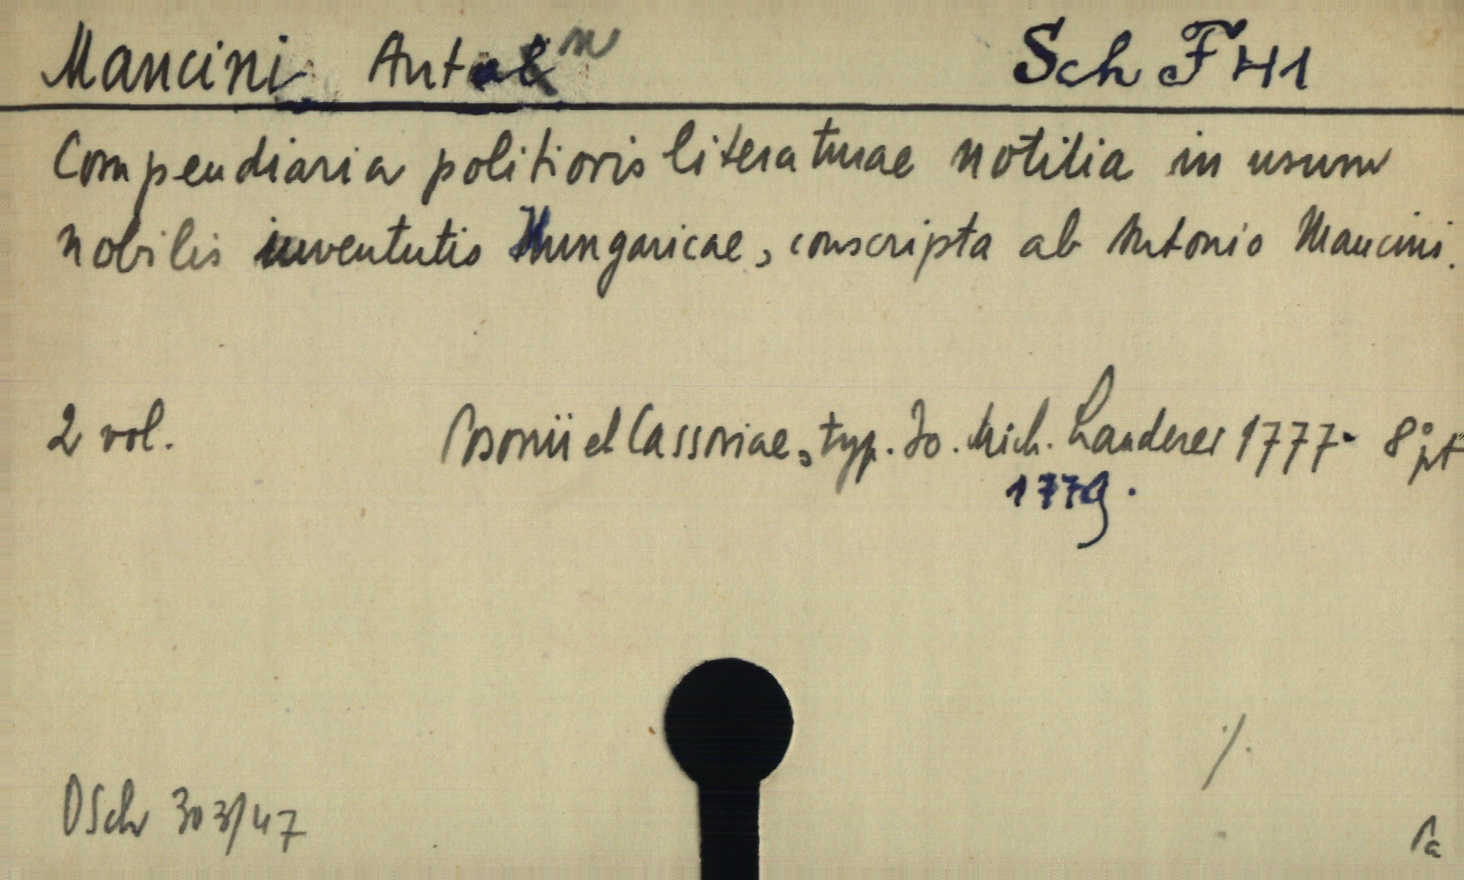 Mancini Antal Sch F 41
Compendiaria politioris literaturae notitia in usum
nobilis iuventutis Hungaricae, conscripta ab Antonio Mancini.
2 vol. Posonii et Cassoviae, typ. Jo. Mich. Landerer 1777- 8°
1779.
OSch 303/47
%
Pa